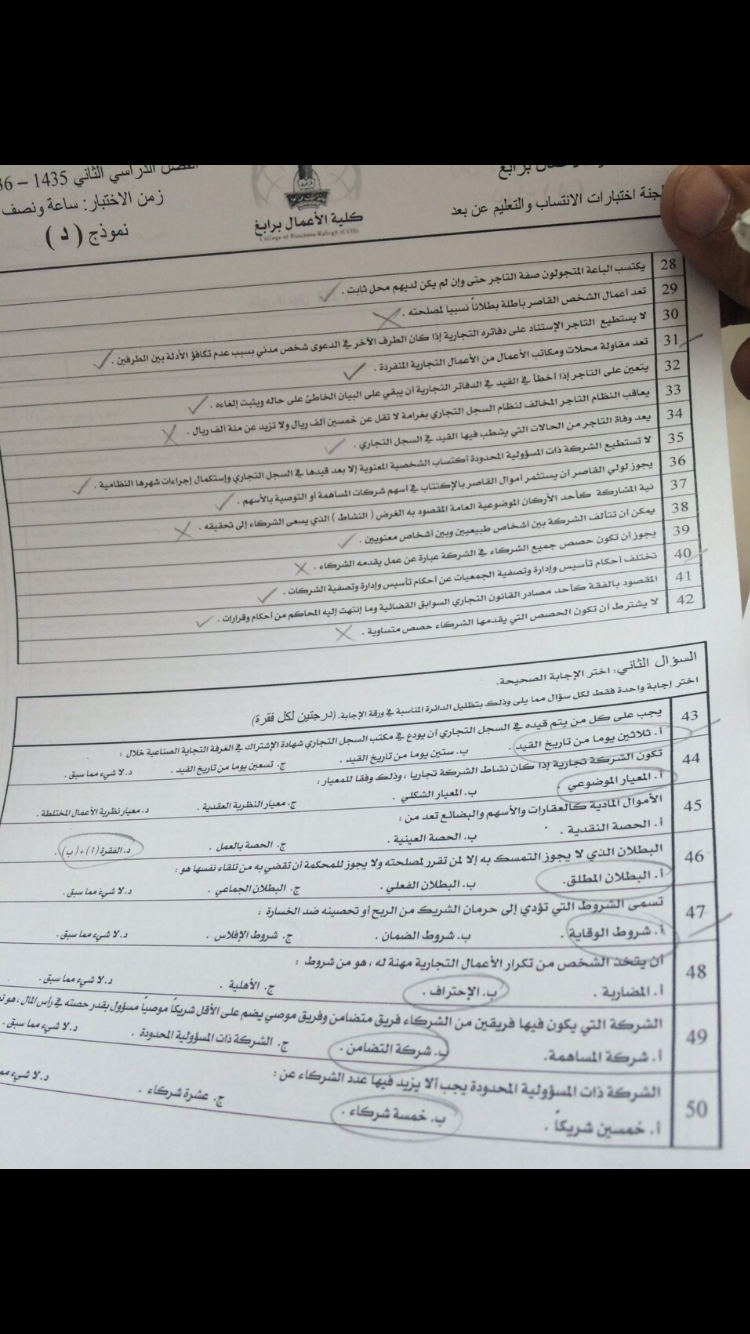 الفصل الدراسي الثاني 1435 – 36
زمن الاختبار: ساعة ونصف
نموذج ( د )
كلية الأعمال برابغ
College of Business-Rabigh (COB)
برابغ
لجنة اختبارات الانتساب والتعليم عن بعد
28 يكتسب الباعة المتجولون صفة التاجر حتى وإن لم يكن لديهم محل ثابت .
29 تعد أعمال الشخص القاصر باطلة بطلاناً نسبيا لمصلحته .
30 لا يستطيع التاجر الإستناد على دفاتره التجارية إذا كان الطرف الآخر في الدعوى شخص مدني بسبب عدم تكافؤ الأدلة بين الطرفين .
31 تعد مقاولة محلات ومكاتب الأعمال من الأعمال التجارية المنفردة .
32 يتعين على التاجر إذا أخطأ في القيد في الدفاتر التجارية أن يبقي على البيان الخاطئ على حاله ويثبت إلغاءه .
33 يعاقب النظام التاجر المخالف لنظام السجل التجاري بغرامة لا تقل عن خمسين ألف ريال ولا تزيد عن مئة ألف ريال .
34 يعد وفاة التاجر من الحالات التي يشطب فيها القيد في السجل التجاري .
35 لا تستطيع الشركة ذات المسؤولية المحدودة أكتساب الشخصية المعنوية إلا بعد قيدها في السجل التجاري وإستكمال إجراءات شهرها النظامية .
36 يجوز لولي القاصر أن يستثمر أموال القاصر بالإكتتاب في أسهم شركات المساهمة أو التوصية بالأسهم .
37 نية المشاركة كأحد الأركان الموضوعية العامة المقصود به الغرض ( النشاط ) الذي يسعى الشركاء إلى تحقيقه .
38 يمكن أن تتألف الشركة بين أشخاص طبيعيين وبين أشخاص معنويين .
39 يجوز أن تكون حصص جميع الشركاء في الشركة عبارة عن عمل يقدمه الشركاء .
40 تختلف أحكام تأسيس وإدارة وتصفية الجمعيات عن أحكام تأسيس وإدارة وتصفية الشركات .
41 المقصود بالفقة كأحد مصادر القانون التجاري السوابق القضائية وما إنتهت إليه المحاكم من أحكام وقرارات .
42 لا يشترط أن تكون الحصص التي يقدمها الشركاء حصص متساوية .
السؤال الثاني: اختر الإجابة الصحيحة.
اختر إجابة واحدة فقط لكل سؤال مما يلى وذلك بتظليل الدائرة المناسبة في ورقة الإجابة. (درجتين لكل فقرة)
43 يجب على كل من يتم قيده في السجل التجاري أن يودع في مكتب السجل التجاري شهادة الإشتراك في الغرفة التجاية الصناعية خلال :
أ. ثلاثين يوما من تاريخ القيد . ب. ستين يوما من تاريخ القيد . ج. تسعين يوما من تاريخ القيد . د. لا شيء مما سبق .
44 تكون الشركة تجارية إذا كان نشاط الشركة تجاريا ، وذلك وفقا للمعيار :
أ. المعيار الموضوعي . ب. المعيار الشكلي . ج. معيار النظرية العقدية . د. معيار نظرية الأعمال المختلطة .
45 الأموال المادية كالعقارات والأسهم والبضائع تعد من :
أ. الحصة النقدية . ب. الحصة العينية . ج. الحصة بالعمل . د. الفقرة (أ)+(ب) .
46 البطلان الذي لا يجوز التمسك به إلا لمن تقرر لمصلحته ولا يجوز للمحكمة أن تقضي به من تلقاء نفسها هو :
أ. البطلان المطلق. ب. البطلان الفعلي . ج. البطلان الجماعي . د. لا شيء مما سبق .
47 تسمى الشروط التي تؤدي إلى حرمان الشريك من الربح أو تحصينه ضد الخسارة :
أ. شروط الوقاية . ب. شروط الضمان . ج. شروط الإفلاس . د. لا شيء مما سبق .
48 أن يتخذ الشخص من تكرار الأعمال التجارية مهنة له ، هو من شروط :
أ. المضاربة . ب. الإحتراف . ج. الأهلية . د. لا شيء مما سبق .
49 الشركة التي يكون فيها فريقين من الشركاء فريق متضامن وفريق موصي يضم على الأقل شريكاً موصياً مسؤول بقدر حصته في رأس المال ، هو
أ. شركة المساهمة. ب. شركة التضامن . ج. الشركة ذات المسؤولية المحدودة . د. لا شيء مما سبق .
50 الشركة ذات المسؤولية المحدودة يجب ألا يزيد فيها عدد الشركاء عن :
أ. خمسين شريكاً . ب. خمسة شركاء . ج. عشرة شركاء . د. لا شيء